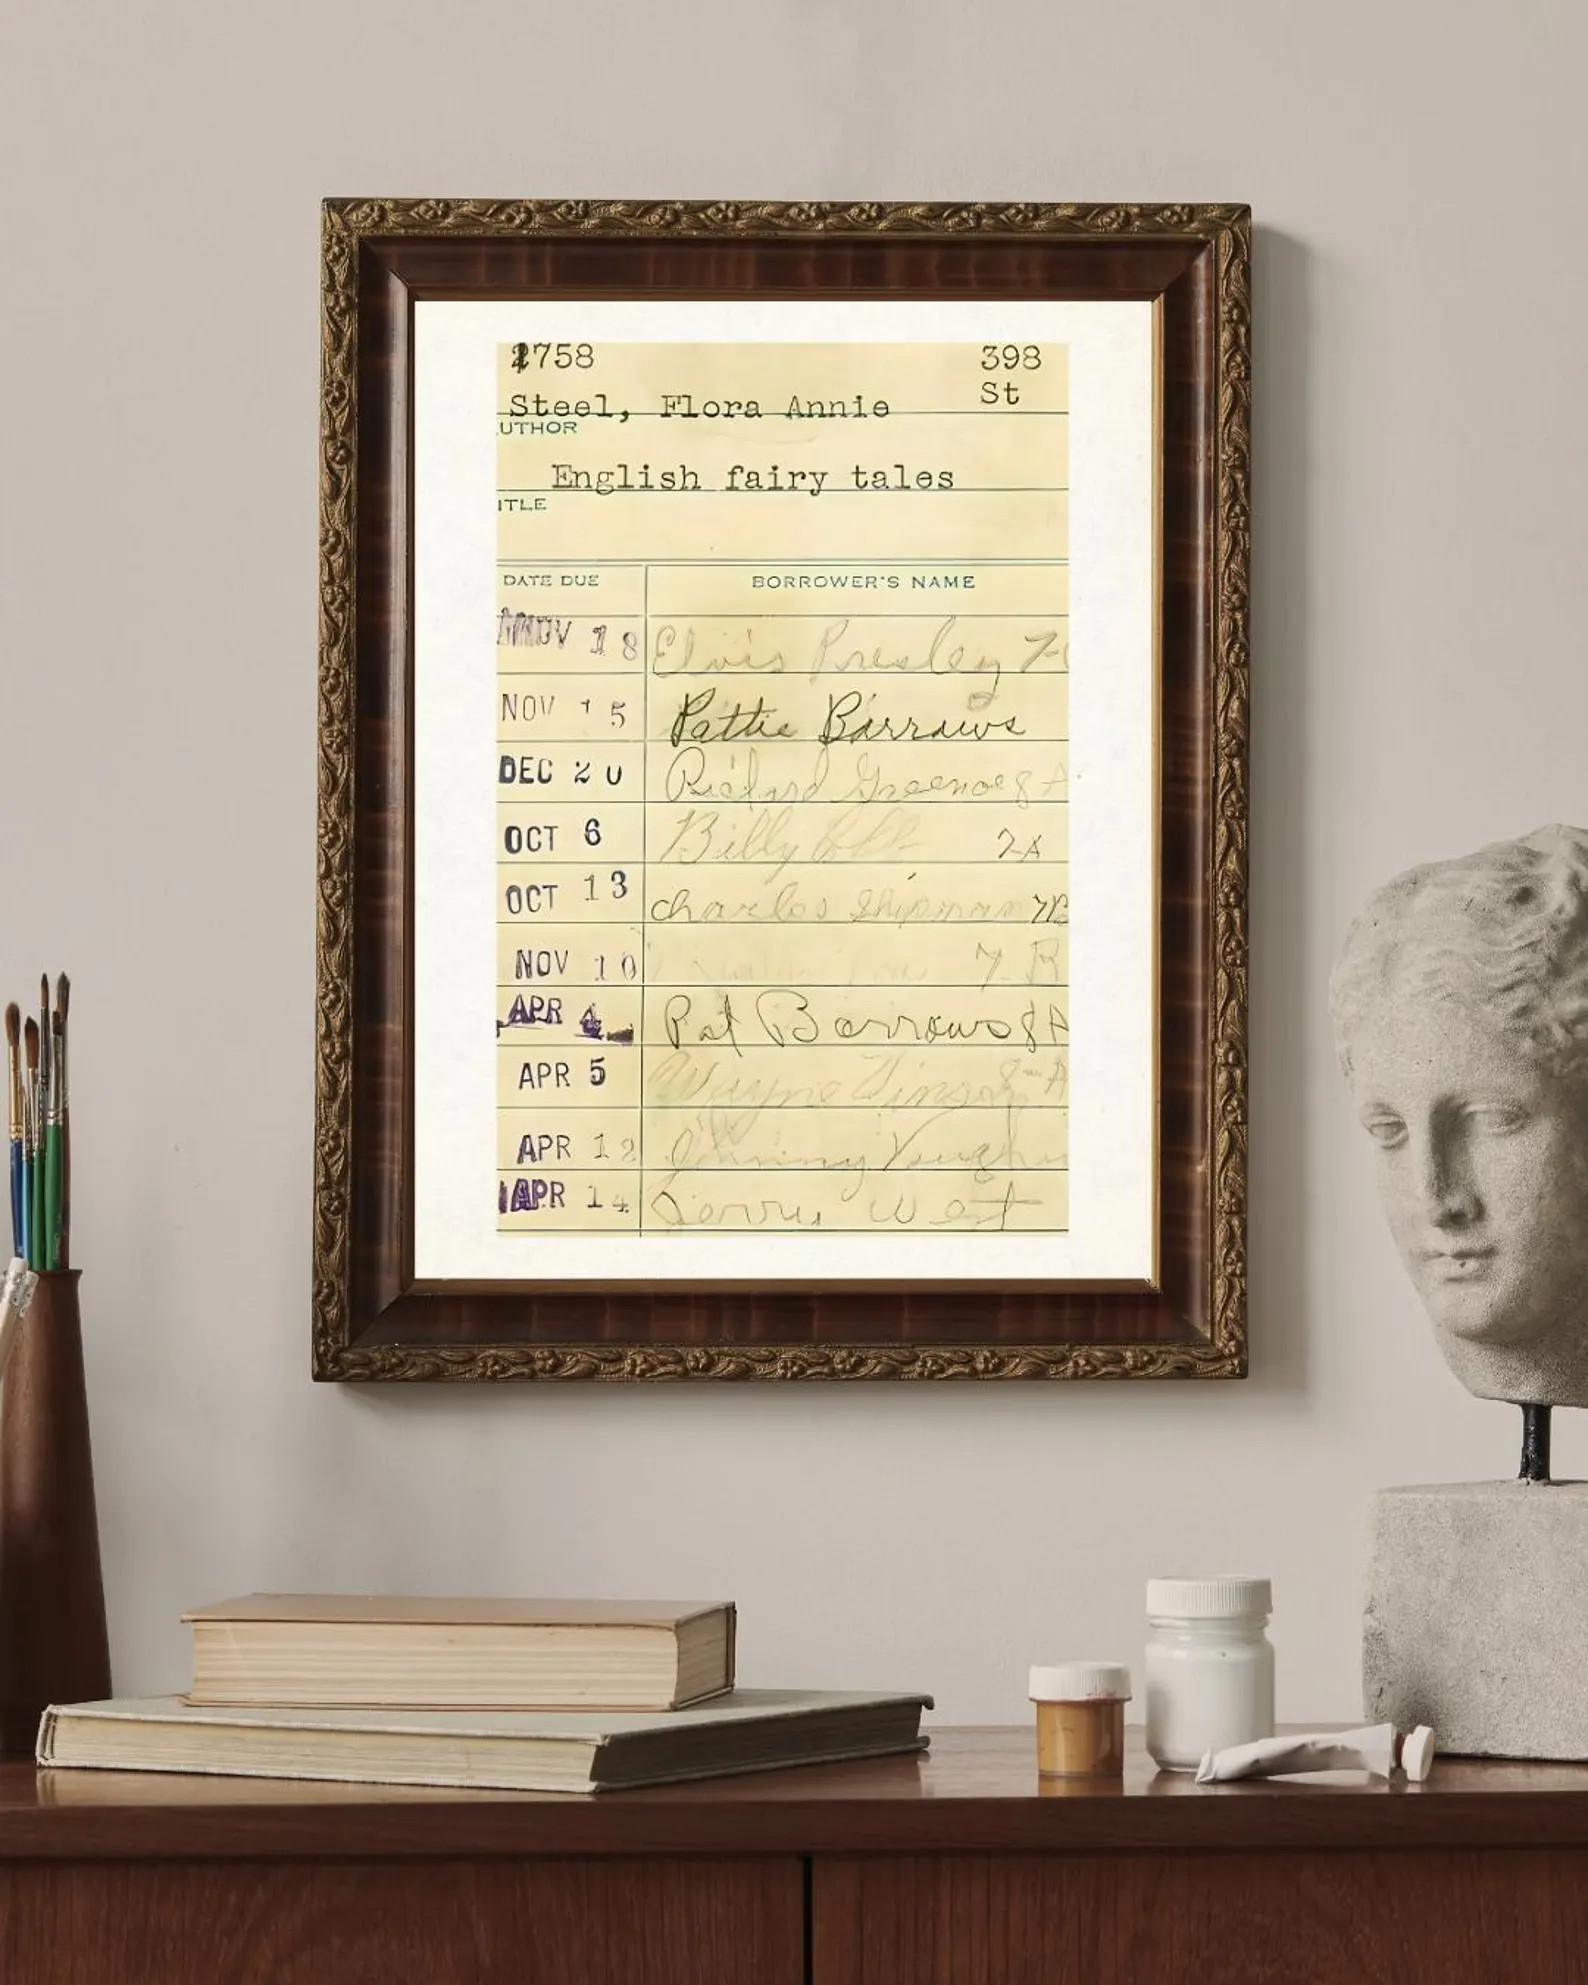 1758
398
St
Steel, Flora Annie
UTHOR
English fairy tales
ITLE
DATE DUE BORROWER'S NAME
NOV 18 Elvis Presley 7-
NOV 15 Pattie Barrows
DEC 20 Richard 8 A
OCT 6 Billy 7A
OCT 13 Charles Shipman 7B
NOV 10 7 B
APR 4 Pat Barrows 8 A
APR 5 Wayne 8-A
APR 12 Vaughn
APR 14 West